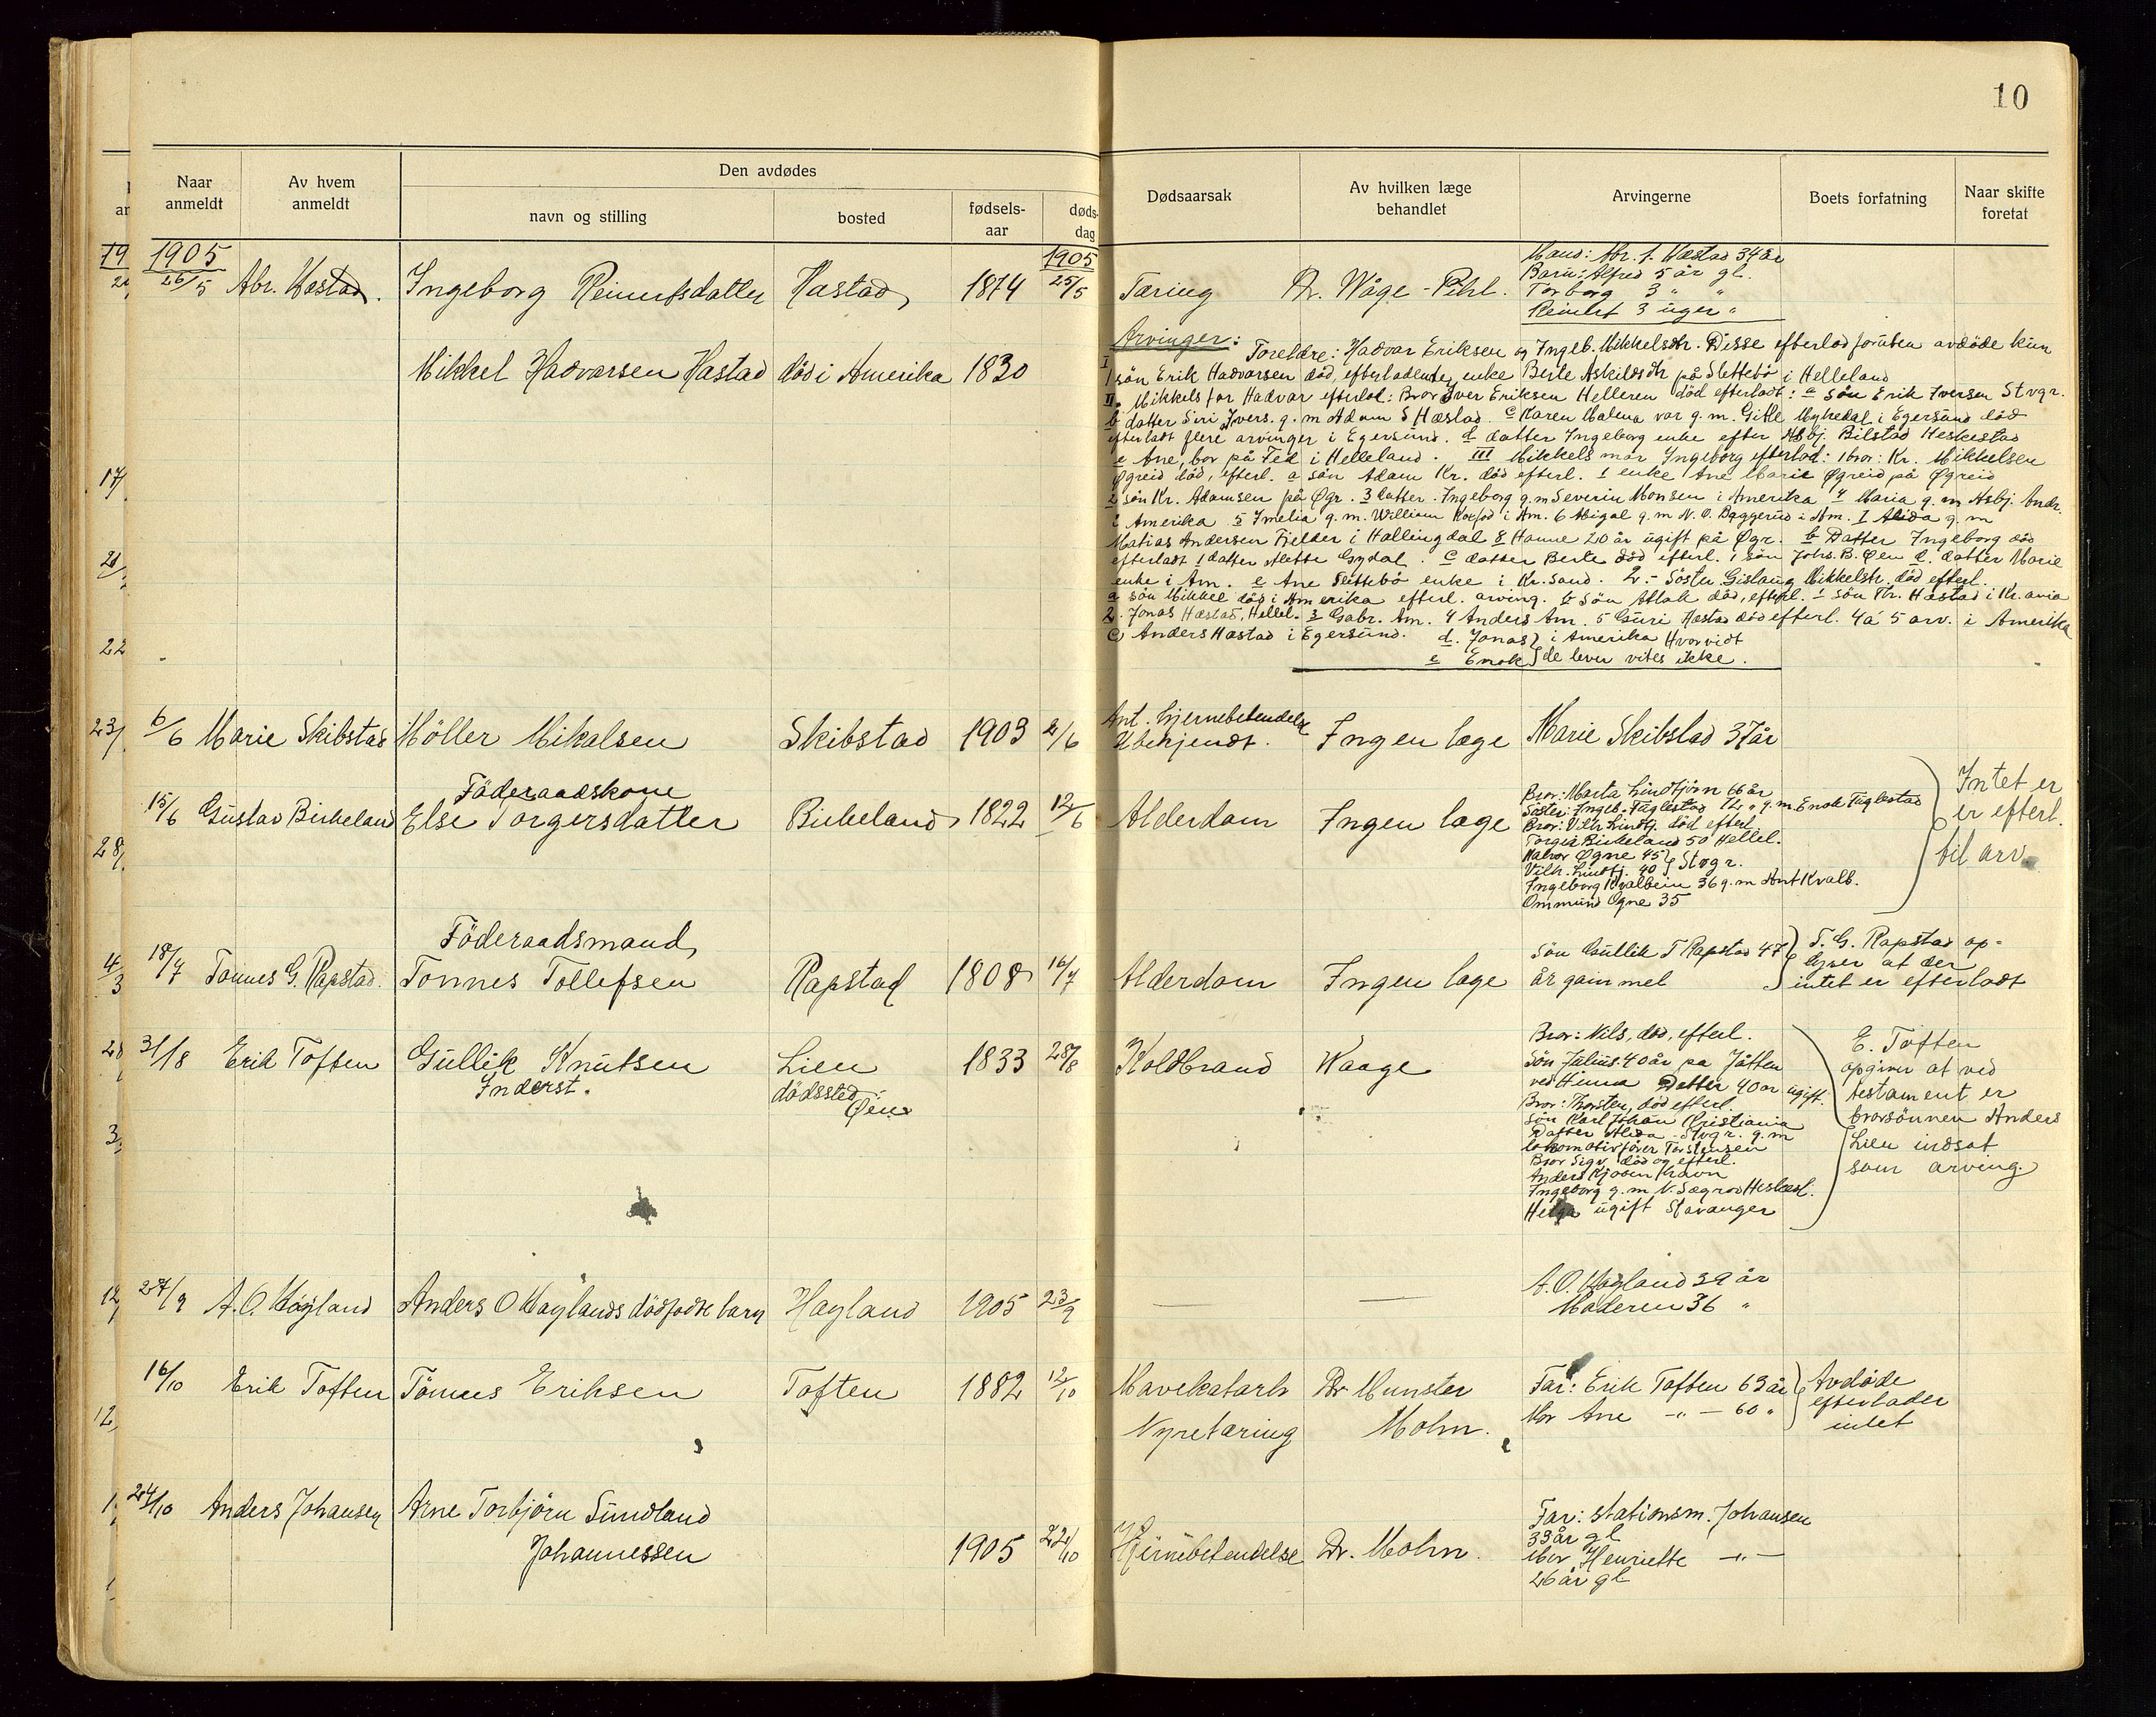 10
Naar anmeldt
Av hvem anmeldt
Den avdødes
navn og stilling
bosted
fødsels-aar
døds-dag
Dødsaarsak
Av hvilken læge behandlet
Arvingerne
Boets forfatning
Naar skifte foretat
1905 1905
26/5 Abr. Hæstad. Ingeborg Reinertsdatter Hæstad 1874 25/5 Tæring Dr. Wåge-Pihl.
Mand: Abr. J. Hæstad 34 år
Barn: Alfred 5 år gl.
Torborg 3 " "
Reinert 3 uger "
Mikkel Hadvarsen Hæstad död i Amerika 1830
Arvinger: Foreldre: Hadvar Eriksen og Ingeb. Mikkelsdtr. Disse efterlod foruten avdöde kun
I 1 sön Erik Hadvarsen död, efterladende enke Berte Askildsdtr på Slettebö i Helleland
II. Mikkels far Hadvar efterlod: Bror Iver Eriksen Helleren död efterladt: a sön Erik Iversen Stvgr.
b datter Siri Ivers. g. m Adam S Hæstad. c Karen Malena var g. m. Gitle Mykedal i Egersund död
efterladt flere arvinger i Egersund. d datter Ingeborg enke efter Asbj. Bilstad Heskestad
e Ane, bor på Fed i Helleland. III Mikkels mor Ingeborg efterlod: 1 bror: Kr. Mikkelsen
Øgreid död, efterl. a sön Adam Kr. död efterl. 1 enke Ane Marie Øgreid på Øgreid
2 sön Kr. Adamsen på Øgr. 3 datter. Ingeborg g. m Severin Monsen i Amerika 4 Maria g. m Asbj. Andr.
i Amerika 5 Imelia g. m. William Koxfod i Am. 6 Abigal g. m N. O. Baggerud i Am. 7 Alida g. m
Matias Andersen Fjelder i Hallingdal 8 Hanne 20 år ugift på Øgr. b Datter Ingeborg död
efterladt 1 datter Mette Gydal. c datter Berte död efterl. 1 sön Johs. B. Øen d. datter Marie
enke i Am. e Ane Slettebö enke i Kr. sand. 2.- Söster Gislaug Mikkelstr. död efterl.
a sön Mikkel död i Amerika efterl. arving. b Sön Atlak död, efterl. 1 sön Th. Hæstad i Kr. ania
2. Jonas Hæstad, Hellel. 3 Gabr. Am. 4 Anders Am. 5 Guri Hæstad död efterl. 4 á 5 arv. i Amerika
c) Anders Hæstad i Egersund. d. Jonas } i Amerika Hvorvidt
e Enok } de lever vites ikke.
6/6 Marie Skibstad Möller Mikalsen Skibstad 1903 2/6 Ant. hjernebetendelse Ubekjendt. Ingen læge Marie Skibstad 37 år
Föderaadskone
15/6 Gustav Birkeland Else Torgersdatter Birkeland 1822 12/6 Alderdom Ingen læge
Bror: Marta Lindtjörn 66 år
Söster: Ingeb. Fuglestad 72 " g. m. Enok Fuglestad
Bror: Vilh Lindtj. död efterl
Torger Birkeland 50 Hellel.
Halvor Øgne 45 } Stvgr.
Vilh. Lindtj. 40 }
Ingeborg Kvalbein 36 g. m Ant Kvalb.
Ommund Ogne 35
Intet er
er efterl.
til arv.
Föderaadsmand
18/7 Tönnes G. Rapstad. Tönnes Tollefsen Rapstad 1808 16/7 Alderdom Ingen læge
Sön Gullik T Rapstad 47
år gammel
T. G. Rapstad op-
lyser at der
intet er efterladt
31/8 Erik Toften Gullik Knutsen Lien 1833 28/8 Koldbrand Waage
Inderst. dödssted: Øen
Bror: Nils, död, efterl.
Sön Julius 40 år på Jåtten
ved Hinna Datter 40 år ugift.
Bror: Thorsten, död efterl.
Sön Karl Johan Kristiania
Datter Alida Stvgr. g. m
lokomotivförer Torstensen
Bror Sigv. död og efterl.
Anders Kjöbenhavn
Ingeborg g. m N. Sægrov Heskest.
Helga ugift Stavanger
E. Toften
opgiver at ved
testament er
brorsönnen Anders
Lien indsat
som arving.
27/9 A. O. Høgland Anders O Høglands dödfödte barn Høgland 1905 23/9 — —
A. O. Høgland 39 år
Moderen 36 "
16/10 Erik Toften Tönnes Eriksen Toften 1882 12/10 Mavekatarh Dr Munster
Nyretæring Holm.
Far: Erik Toften 63 år
Mor Ane -"- 60 "
Avdöde
efterlader
intet
24/10 Anders Johansen Arne Torbjörn Sundland
Johannessen 1905 22/10 Hjernebetendelse Dr. Holm.
Far: stationsm. Johansen
33 år gl
Mor Henriette -"-
26 år gl